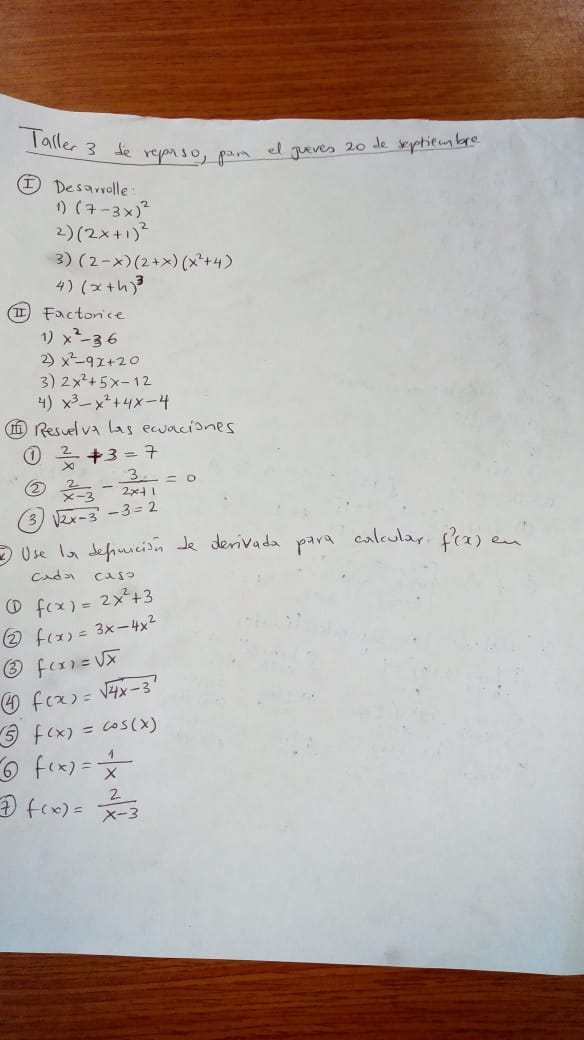 Taller 3 de repaso, para el jueves 20 de septiembre
I Desarrolle:
1) (7-3x)²
2) (2x+1)²
3) (2-x)(2+x)(x²+4)
4) (x+h)³
II Factorice
1) x²-36
2) x²-9x+20
3) 2x²+5x-12
4) x³-x²+4x-4
III Resuelva las ecuaciones
1 2/x +3=7
2 2/(x-3) - 3/(2x+1) = 0
3 √(2x-3) -3=2
Use la definición de derivada para calcular f'(x) en
cada caso
1 f(x) = 2x²+3
2 f(x) = 3x-4x²
3 f(x) = √x
4 f(x) = √(4x-3)
5 f(x) = cos(x)
6 f(x) = 1/x
7 f(x) = 2/(x-3)